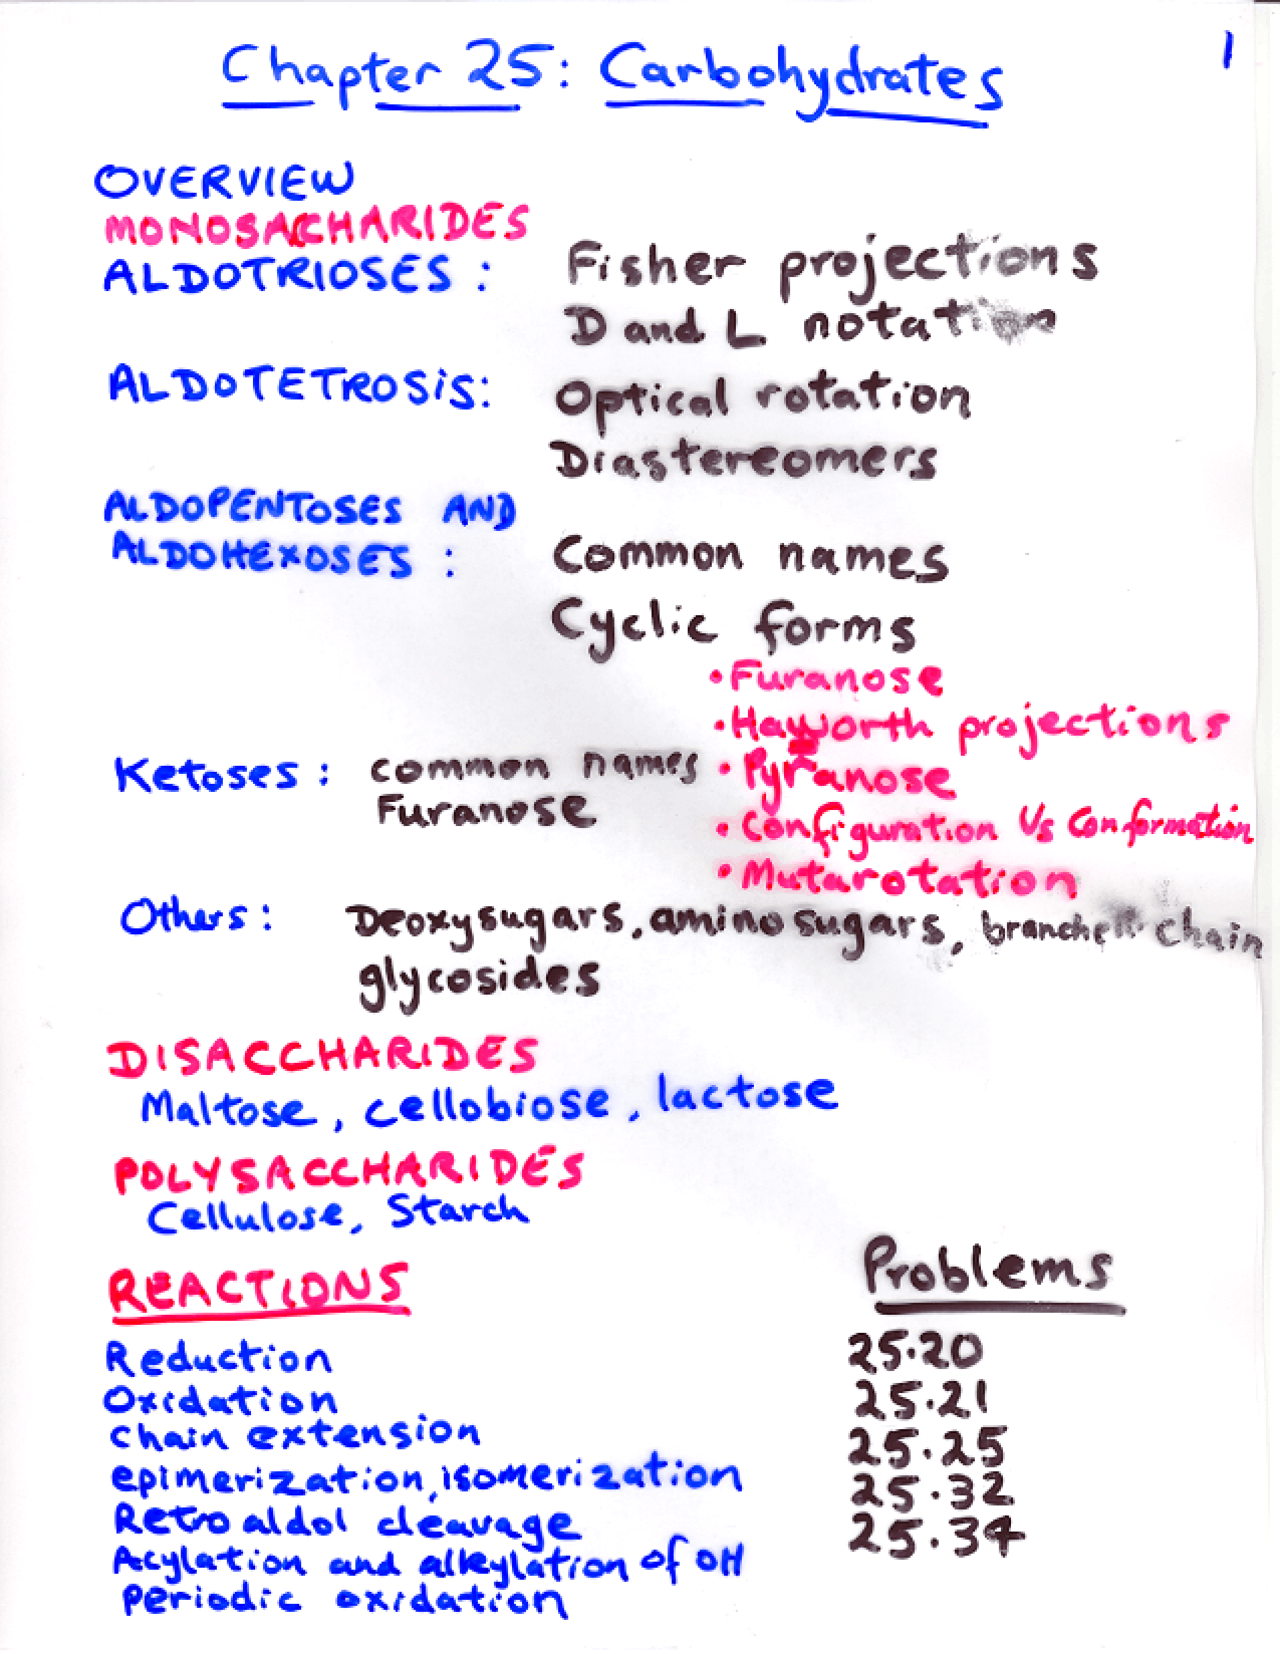 Chapter 25: Carbohydrates
1
OVERVIEW
MONOSACCHARIDES
ALDOTRIOSES : Fisher projections
D and L notation
ALDOTETROSiS: Optical rotation
Diastereomers
ALDOPENTOSES AND
ALDOHEXOSES : Common names
Cyclic forms
• Furanose
• Hayworth projections
Ketoses : common names
• Pyranose
Furanose
• Configuration Vs Conformation
• Mutarotation
Others : Deoxysugars, amino sugars, branched chain
glycosides
DISACCHARIDES
Maltose, cellobiose, lactose
POLYSACCHARIDES
Cellulose, Starch
REACTIONS
Problems
Reduction
25.20
Oxidation
25.21
chain extension
25.25
epimerization, isomerization
25.32
Retro aldol cleavage
25.34
Acylation and alkylation of OH
Periodic oxidation